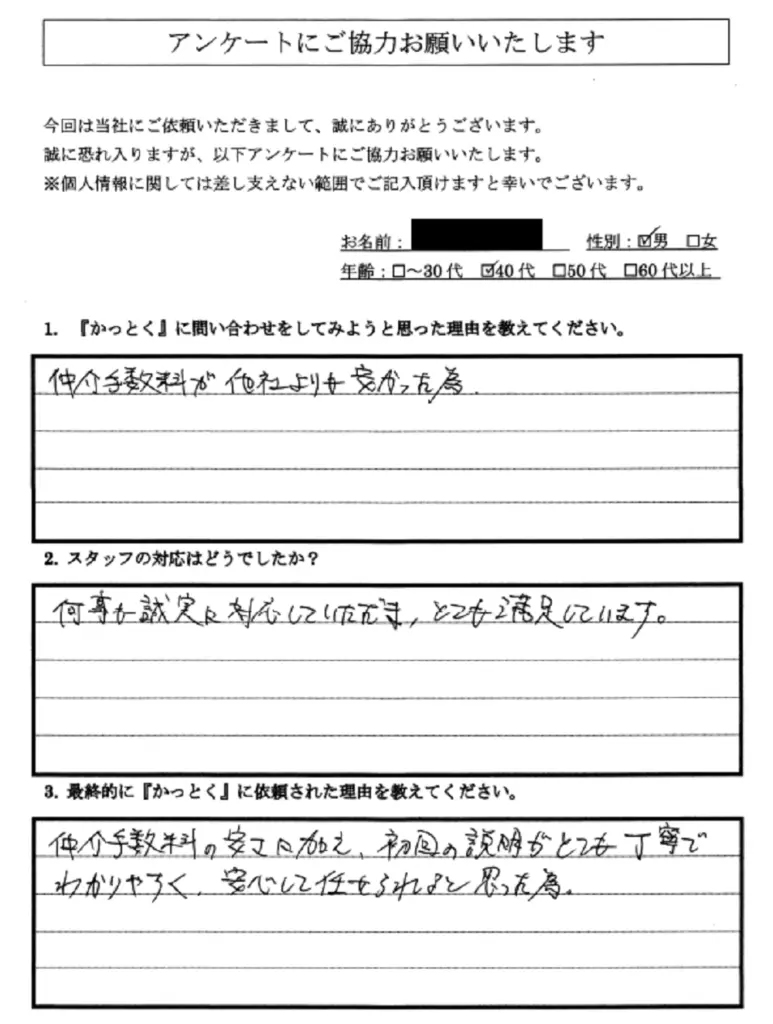 アンケートにご協力お願いいたします
今回は当社にご依頼いただきまして、誠にありがとうございます。
誠に恐れ入りますが、以下アンケートにご協力お願いいたします。
※個人情報に関しては差し支えない範囲でご記入頂けますと幸いでございます。
お名前： 性別：☑男 □女
年齢：□～30代 ☑40代 □50代 □60代以上
1. 『かっとく』に問い合わせをしてみようと思った理由を教えてください。
仲介手数料が他社よりも安かった為.
2. スタッフの対応はどうでしたか？
何事も誠実に対応していただき，とても満足しています。
3. 最終的に『かっとく』に依頼された理由を教えてください。
仲介手数料の安さに加え、初回の説明がとても丁寧で
わかりやすく、安心して任せられると思った為.